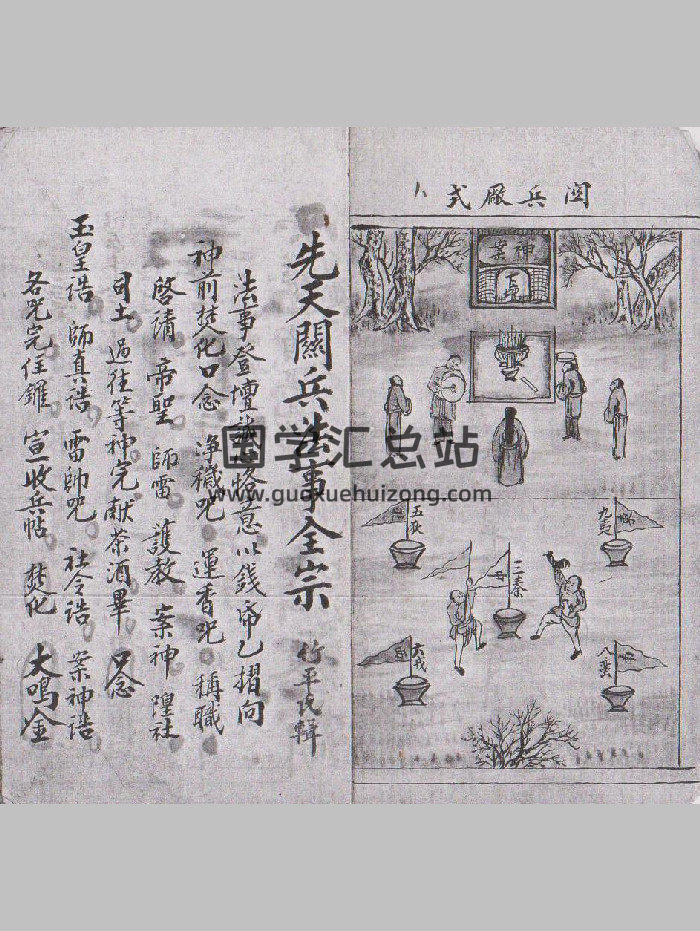 式廠兵関
神案
五狄
九夷
三秦
六戎
八蠻
先天關兵法事全宗 竹平氏輯
法事登壇誠 意以錢帛乙摺向
神前焚化口念 淨穢咒 運香咒 稱職
啓請 帝聖 師雷 護教 案神 隍社
司土 過往等神完献茶酒畢 口念
玉皇诰 師真诰 雷師咒 社令诰 案神诰
各咒完 鑼 宣收兵帖 焚化 大鳴金
国学汇总站
www.guoxuehuizong.com